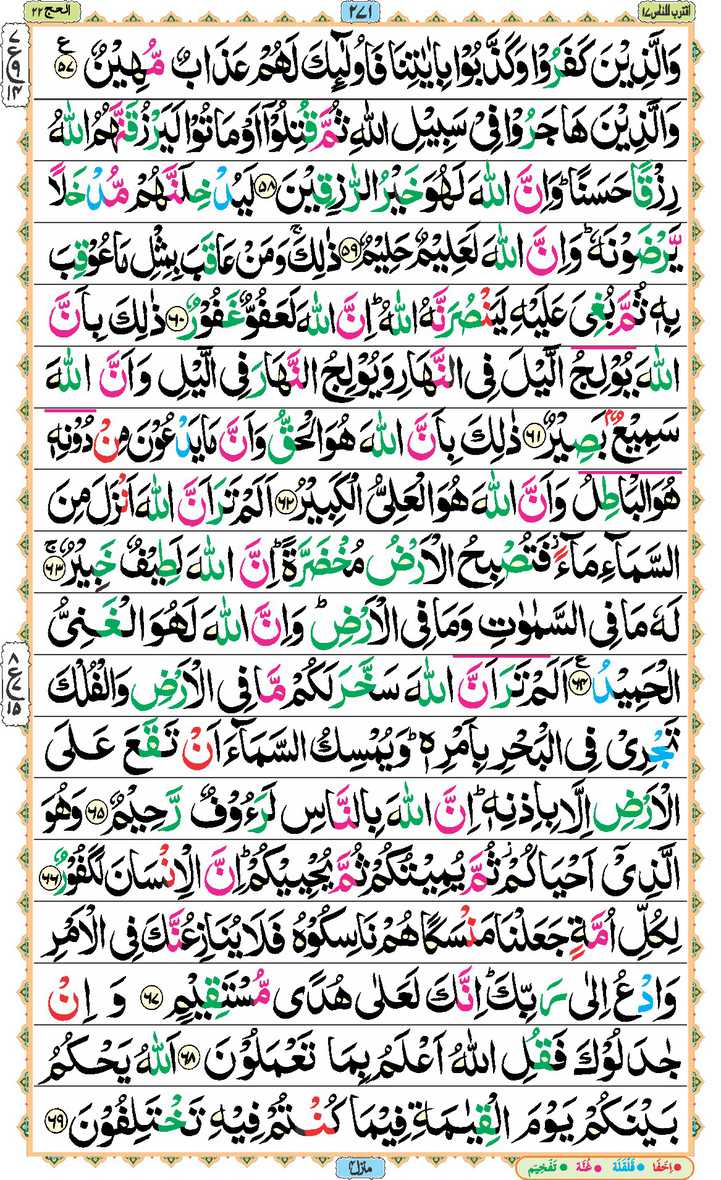 اقترب للناس ١٧
٢٧١
الحج ٢٢
وَالَّذِيْنَ كَفَرُوْا وَكَذَّبُوْا بِاٰيٰتِنَا فَاُولٰٓئِكَ لَهُمْ عَذَابٌ مُّهِيْنٌ ۝٥٧ ع
وَالَّذِيْنَ هَاجَرُوْا فِىْ سَبِيْلِ اللّٰهِ ثُمَّ قُتِلُوْٓا اَوْ مَاتُوْا لَيَرْزُقَنَّهُمُ اللّٰهُ
رِزْقًا حَسَنًا ؕ وَاِنَّ اللّٰهَ لَهُوَ خَيْرُ الرّٰزِقِيْنَ ۝٥٨ لَيُدْخِلَنَّهُمْ مُّدْخَلًا
يَّرْضَوْنَهٗ ؕ وَاِنَّ اللّٰهَ لَعَلِيْمٌ حَلِيْمٌ ۝٥٩ ذٰلِكَ ۚ وَمَنْ عَاقَبَ بِمِثْلِ مَا عُوْقِبَ
بِهٖ ثُمَّ بُغِىَ عَلَيْهِ لَيَنْصُرَنَّهُ اللّٰهُ ؕ اِنَّ اللّٰهَ لَعَفُوٌّ غَفُوْرٌ ۝٦٠ ذٰلِكَ بِاَنَّ
اللّٰهَ يُوْلِجُ الَّيْلَ فِى النَّهَارِ وَيُوْلِجُ النَّهَارَ فِى الَّيْلِ وَاَنَّ اللّٰهَ
سَمِيْعٌۢ بَصِيْرٌ ۝٦١ ذٰلِكَ بِاَنَّ اللّٰهَ هُوَ الْحَقُّ وَاَنَّ مَا يَدْعُوْنَ مِنْ دُوْنِهٖ
هُوَ الْبَاطِلُ وَاَنَّ اللّٰهَ هُوَ الْعَلِىُّ الْكَبِيْرُ ۝٦٢ اَلَمْ تَرَ اَنَّ اللّٰهَ اَنْزَلَ مِنَ
السَّمَآءِ مَآءً ؗ فَتُصْبِحُ الْاَرْضُ مُخْضَرَّةً ؕ اِنَّ اللّٰهَ لَطِيْفٌ خَبِيْرٌ ۝٦٣ ۚ
لَهٗ مَا فِى السَّمٰوٰتِ وَمَا فِى الْاَرْضِ ؕ وَاِنَّ اللّٰهَ لَهُوَ الْغَنِىُّ
الْحَمِيْدُ ۝٦٤ ع اَلَمْ تَرَ اَنَّ اللّٰهَ سَخَّرَ لَكُمْ مَّا فِى الْاَرْضِ وَالْفُلْكَ
تَجْرِىْ فِى الْبَحْرِ بِاَمْرِهٖ ؕ وَيُمْسِكُ السَّمَآءَ اَنْ تَقَعَ عَلَى
الْاَرْضِ اِلَّا بِاِذْنِهٖ ؕ اِنَّ اللّٰهَ بِالنَّاسِ لَرَءُوْفٌ رَّحِيْمٌ ۝٦٥ وَهُوَ
الَّذِىْٓ اَحْيَاكُمْ ؗ ثُمَّ يُمِيْتُكُمْ ثُمَّ يُحْيِيْكُمْ ؕ اِنَّ الْاِنْسَانَ لَكَفُوْرٌ ۝٦٦
لِكُلِّ اُمَّةٍ جَعَلْنَا مَنْسَكًا هُمْ نَاسِكُوْهُ فَلَا يُنَازِعُنَّكَ فِى الْاَمْرِ
وَادْعُ اِلٰى رَبِّكَ ؕ اِنَّكَ لَعَلٰى هُدًى مُّسْتَقِيْمٍ ۝٦٧ وَاِنْ
جٰدَلُوْكَ فَقُلِ اللّٰهُ اَعْلَمُ بِمَا تَعْمَلُوْنَ ۝٦٨ اَللّٰهُ يَحْكُمُ
بَيْنَكُمْ يَوْمَ الْقِيٰمَةِ فِيْمَا كُنْتُمْ فِيْهِ تَخْتَلِفُوْنَ ۝٦٩
ع ٧ ٩ ١٤
ع ٨ ٧ ١٥
منزل ٤
اِخفَا قَلْقَلَة غُنَّة تَفْخِيْم